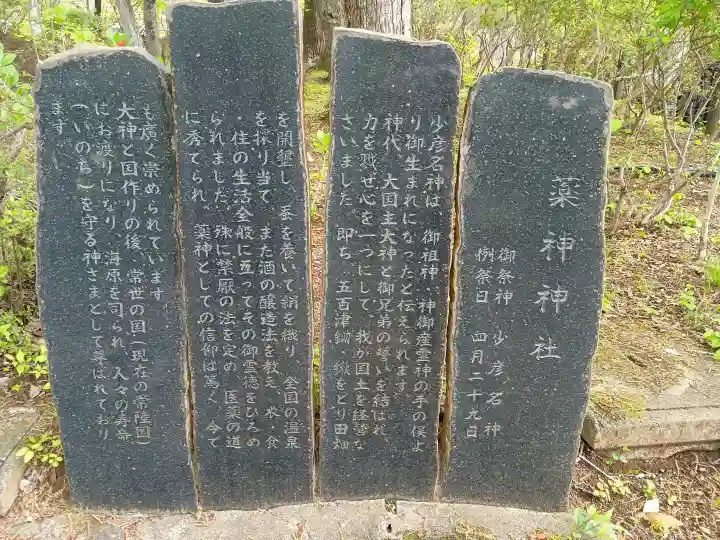 薬神神社
御祭神 少彦名神
例祭日 四月二十九日
少彦名神は、御祖神・神御産霊神の手の俣よ
り御生まれになったと伝えられます
神代、大国主大神と御兄弟の誓いを結ばれ
力を戮ぜ心を一つにして、我が国土を経営な
さいました。即ち、五百津鋤、鍬をとり田畑
を開墾し、蚕を養いて絹を織り、全国の温泉
を探り当て、また酒の醸造法を教え、衣・食
・住の生活全般に亘ってその御霊徳をひろめ
られました。殊に禁厭の法を定め、医薬の道
に秀でられ、薬神としての信仰は篤く、今て
も廣く崇められています
大神と国作りの後、常世の国(現在の常陸国)
にお渡りになり、海原を司られ、人々の寿命
(いのち)を守る神さまとして尊ばれており
ます